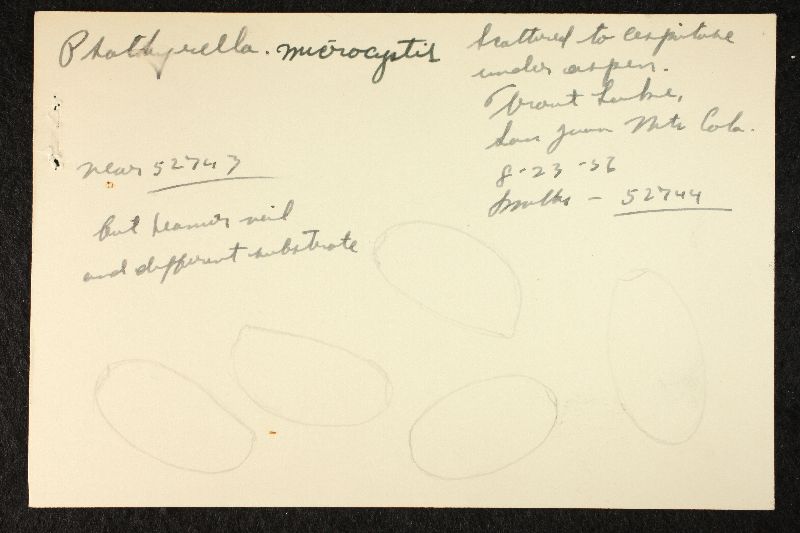 Psathyrella. microcystis
Scattered to cespitose
under aspen.
Trout Lake,
San Juan Mts Colo.
8-23-56
Smith - 52744
near 52743
but heavier veil
and different substrate